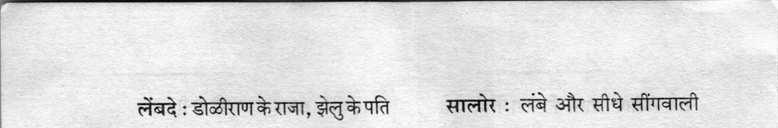 लेंबदे : डोळीराण के राजा, झेलु के पति सालोर : लंबे और सीधे सींगवाली